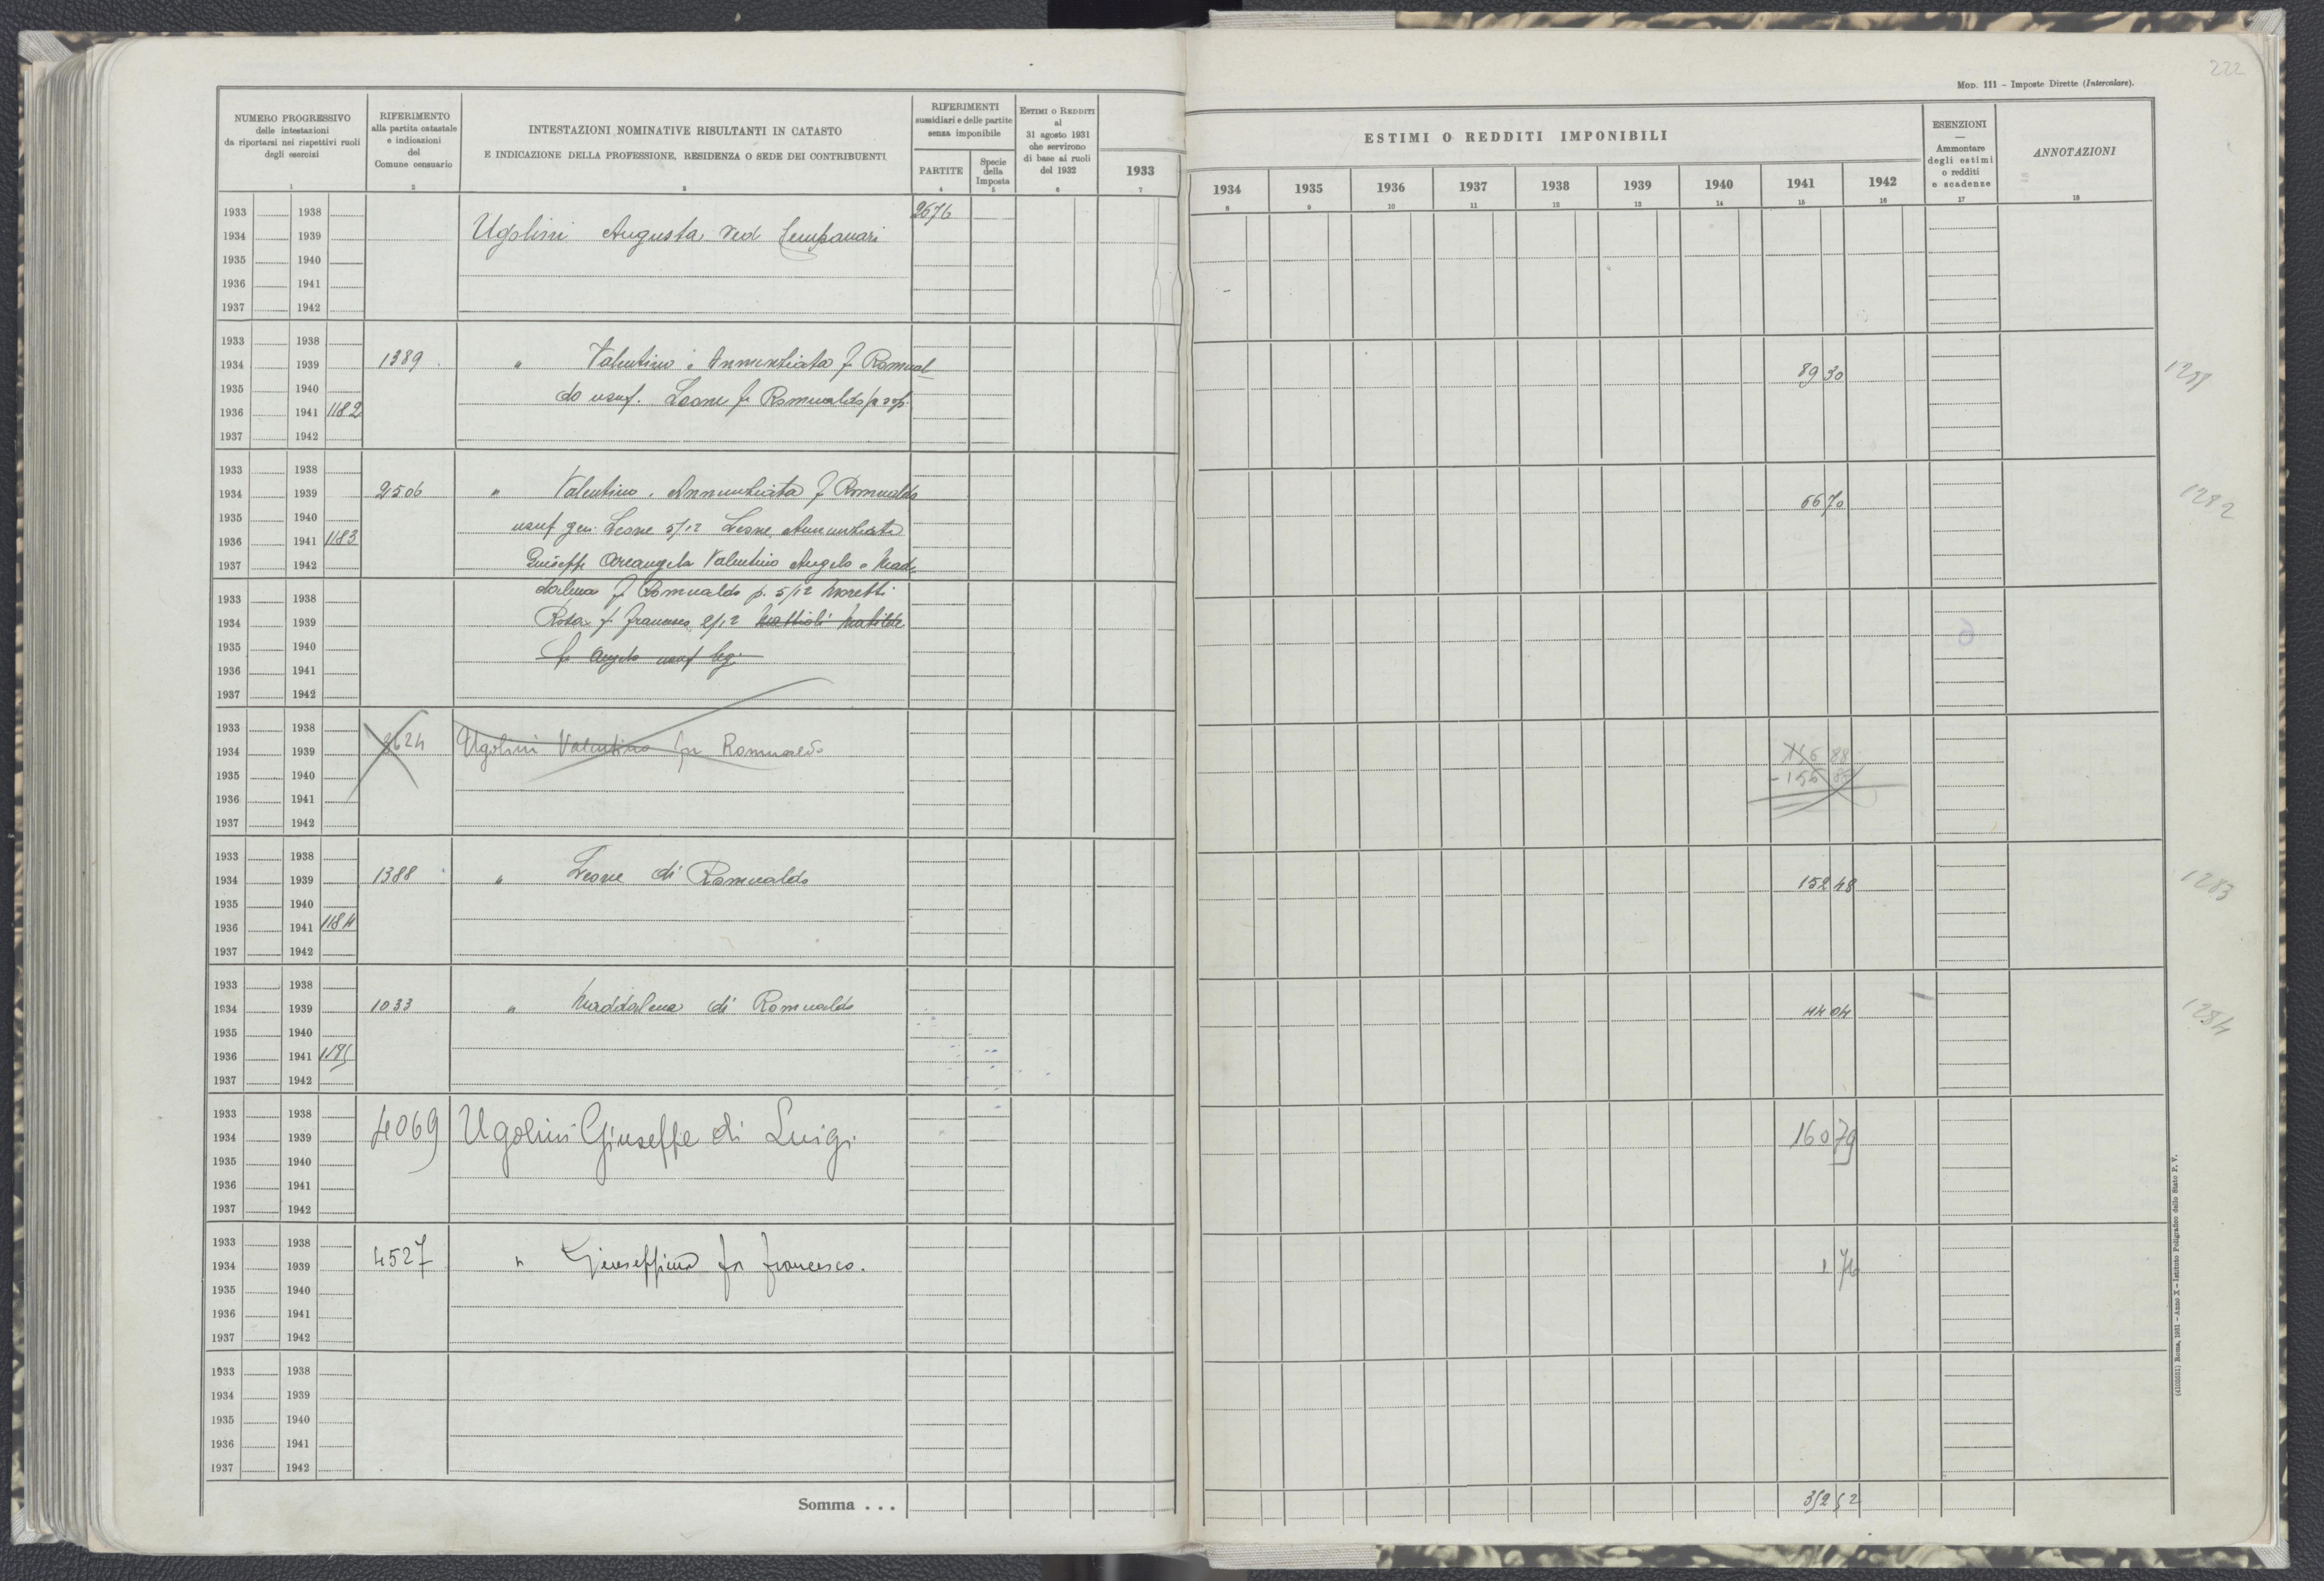 222
Mod. 111 - Imposte Dirette (Intercalare).
NUMERO PROGRESSIVO
delle intestazioni
da riportarsi nei rispettivi ruoli
degli esercizi
1
RIFERIMENTO
alla partita catastale
e indicazioni
del
Comune censuario
2
INTESTAZIONI NOMINATIVE RISULTANTI IN CATASTO
E INDICAZIONE DELLA PROFESSIONE, RESIDENZA O SEDE DEI CONTRIBUENTI
3
RIFERIMENTI
sussidiari e delle partite
senza imponibile
PARTITE
4
Specie
della
Imposta
5
Estimi o Redditi
al
31 agosto 1931
che servirono
di base ai ruoli
del 1932
6
1933
7
ESTIMI O REDDITI IMPONIBILI
1934 1935 1936 1937 1938 1939 1940 1941 1942
8 9 10 11 12 13 14 15 16
ESENZIONI
—
Ammontare
degli estimi
o redditi
e scadenze
17
ANNOTAZIONI
18
1933 1938 2576
1934 1939 Ugolini Augusta ved
1935 1940
1936 1941
1937 1942
1933 1938
1934 1939 1389 " Valentino e Annunziata f Romual 89 30
1935 1940 do usuf. Leone fu Romualdo prop.
1936 1941 1182
1937 1942
1933 1938
1934 1939 2506 " Valentino, Annunziata f Romualdo 66 70 1282
1935 1940 usuf gen. Leone 5/12 Leone, Annunziata
1936 1941 1183
1937 1942 Giuseppe Arcangela Valentino Angelo e Mad-
1933 1938 dalena f Romualdo p. 5/12 Moretti
1934 1939 Rosa f. Francesco 2/12 Mattioli Matilde
1935 1940 fu Angelo usuf leg.
1936 1941
1937 1942
1933 1938
1934 1939 2624 Ugolini Valentino fu Romualdo
1935 1940
1936 1941
1937 1942
1933 1938
1934 1939 1388 " Leone di Romualdo 152 48 1283
1935 1940
1936 1941 1184
1937 1942
1933 1938
1934 1939 1033 " Maddalena di Romualdo 44 04 1284
1935 1940
1936 1941 1185
1937 1942
1933 1938
1934 1939 4069 Ugolini Giuseppe di Luigi 160 79
1935 1940
1936 1941
1937 1942
1933 1938
1934 1939 4527 " Giuseppina fu Francesco.
1935 1940
1936 1941
1937 1942
1933 1938
1934 1939
1935 1940
1936 1941
1937 1942
Somma . . . 352 52
(4103551) Roma, 1931 - Anno X - Istituto Poligrafico dello Stato P. V.